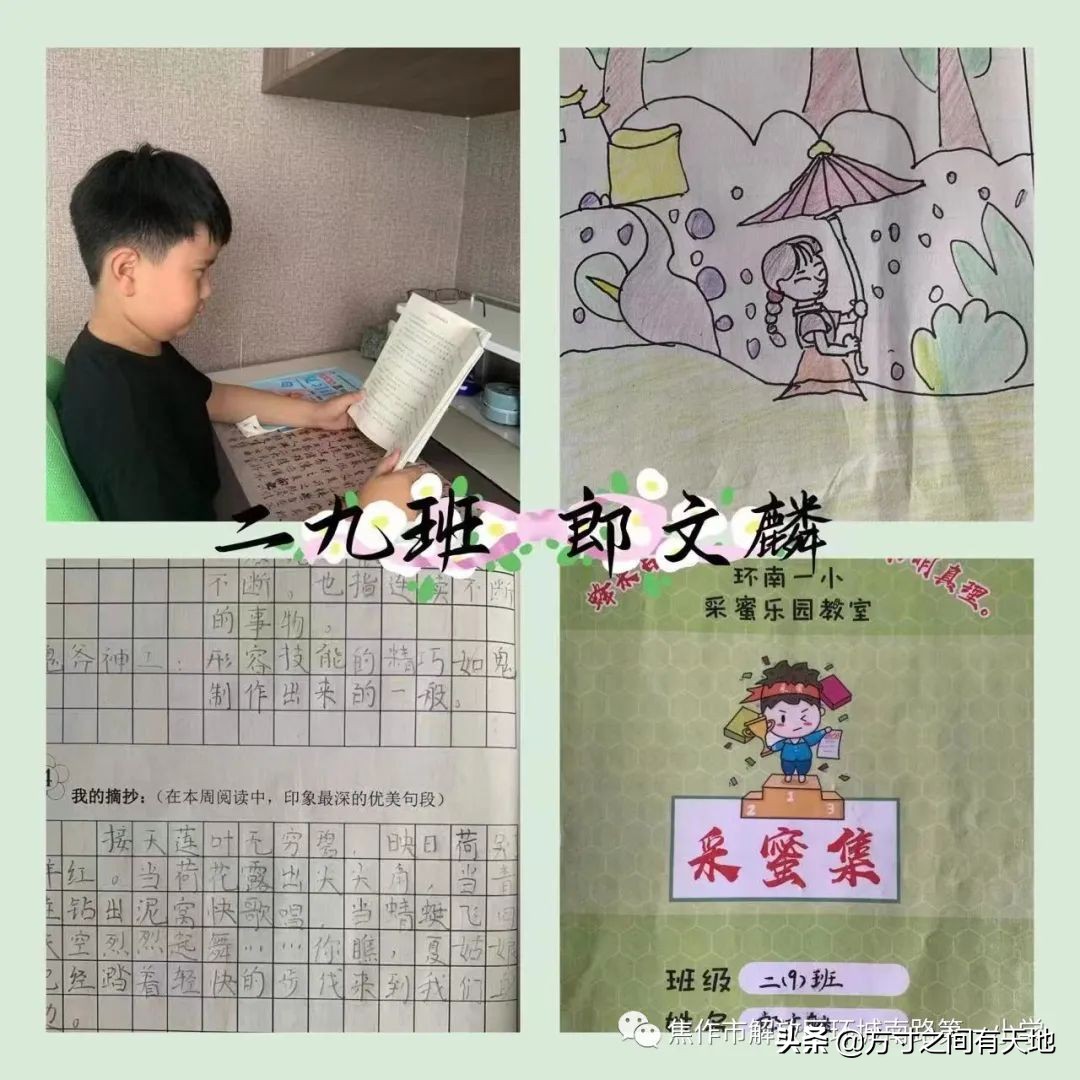 二九班 郎文麟
不断。也指连续不断
的事物。
鬼斧神工：形容技能的精巧如鬼
制作出来的一般。
我的摘抄：（在本周阅读中，印象最深的优美句段）
接天莲叶无穷碧，映日荷
红。当荷花露出尖尖角，当青
钻出泥窝快歌唱 当蜻蜓飞
天空烈烈起舞……你瞧，夏姑娘
已经踏着轻快的步伐来到我们
环南一小
采蜜乐园教室
1
2
3
采蜜集
班级 二(9)班
姓名
焦作市解放区环城南路第一小学
头条 @方寸之间有天地